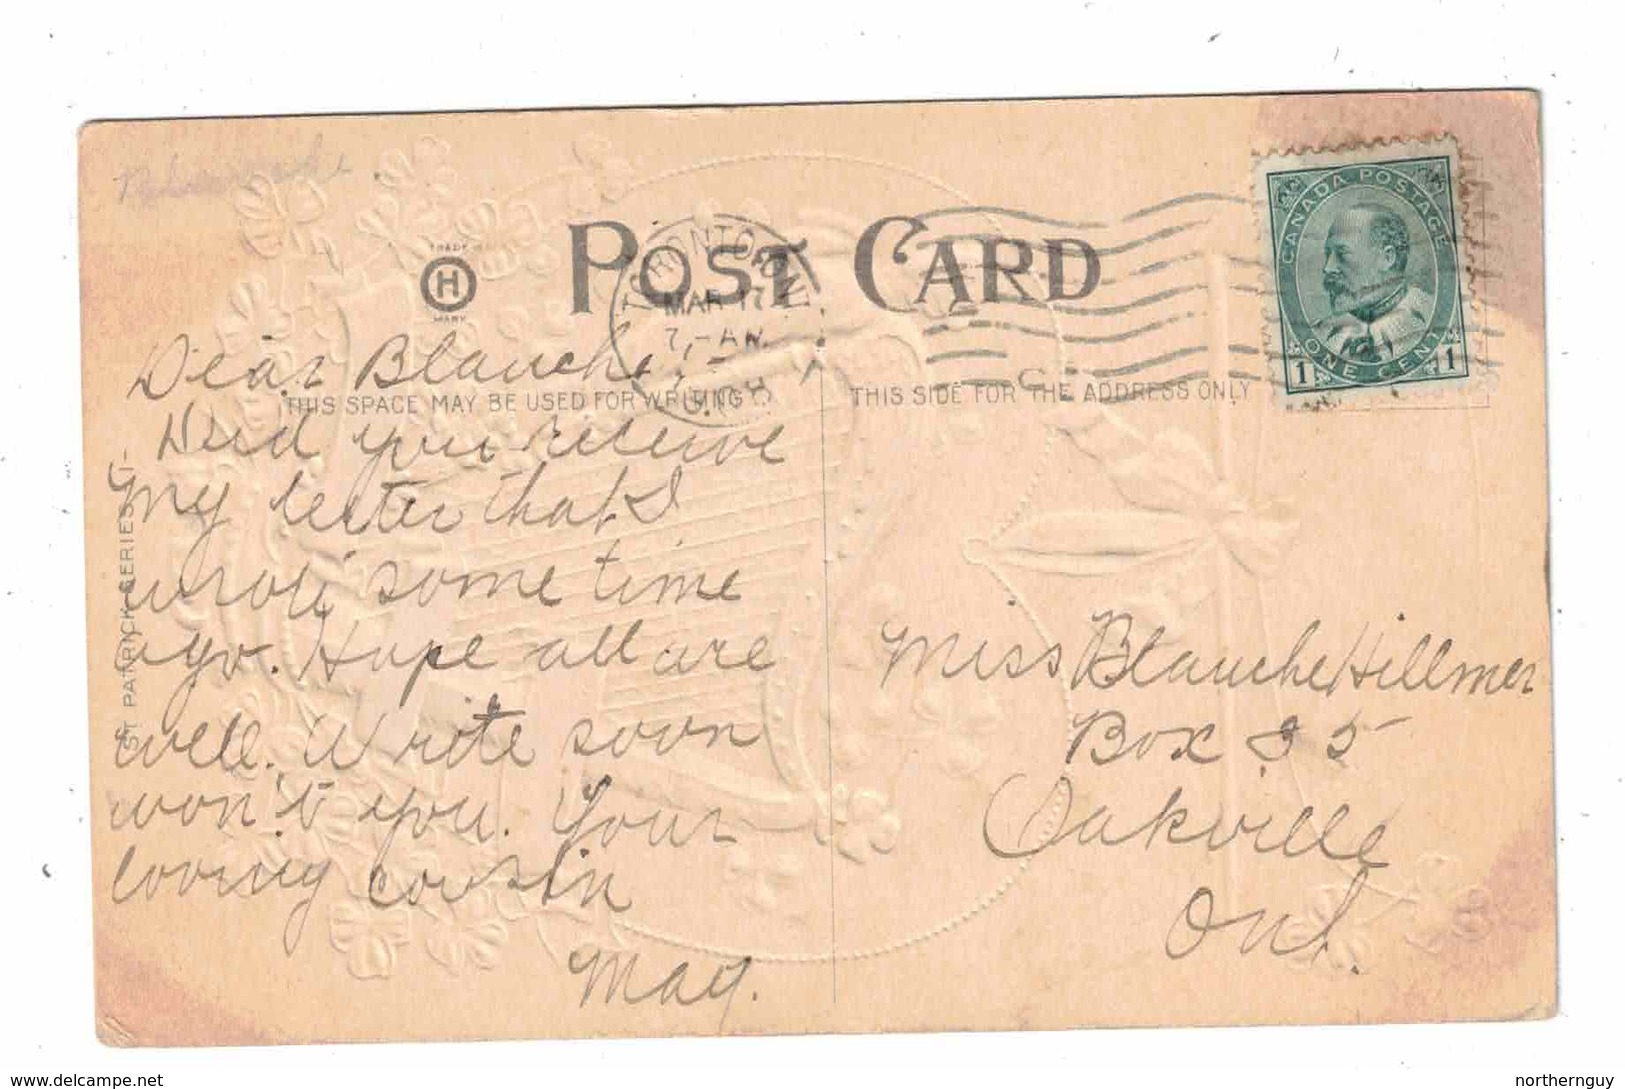 POST CARD
TRADE
H
MARK
TORONTO, ONT
MAR 17
7 - AM
CANADA POSTAGE
ONE CENT
1 1
THIS SPACE MAY BE USED FOR WRITING
THIS SIDE FOR THE ADDRESS ONLY
ST. PATRICK SERIES
Dear Blanche
Did you receive
my letter that I
wrote some time
ago. Hope all are
well. Write soon
won't you. Your
loving cousin
May.
Miss Blanche Hillmer
Box 35
Oakville
Ont.
delcampe.net
northernguy